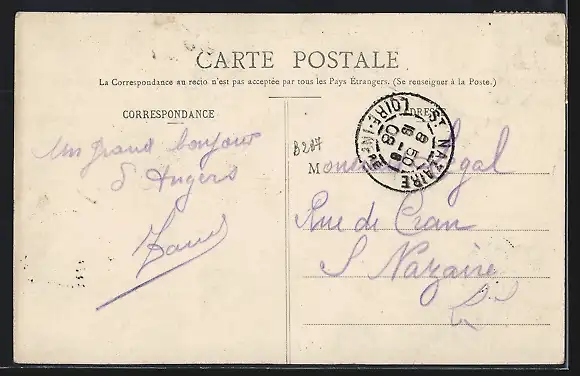 CARTE POSTALE
La Correspondance au recto n'est pas acceptée par tous les Pays Étrangers. (Se renseigner à la Poste.)
CORRESPONDANCE
ADRESSE
Un grand bonjour
d'Angers
B207
ST NAZAIRE
LOIRE-INFRE
Monsieur Legal
Rue de Cran
St Nazaire